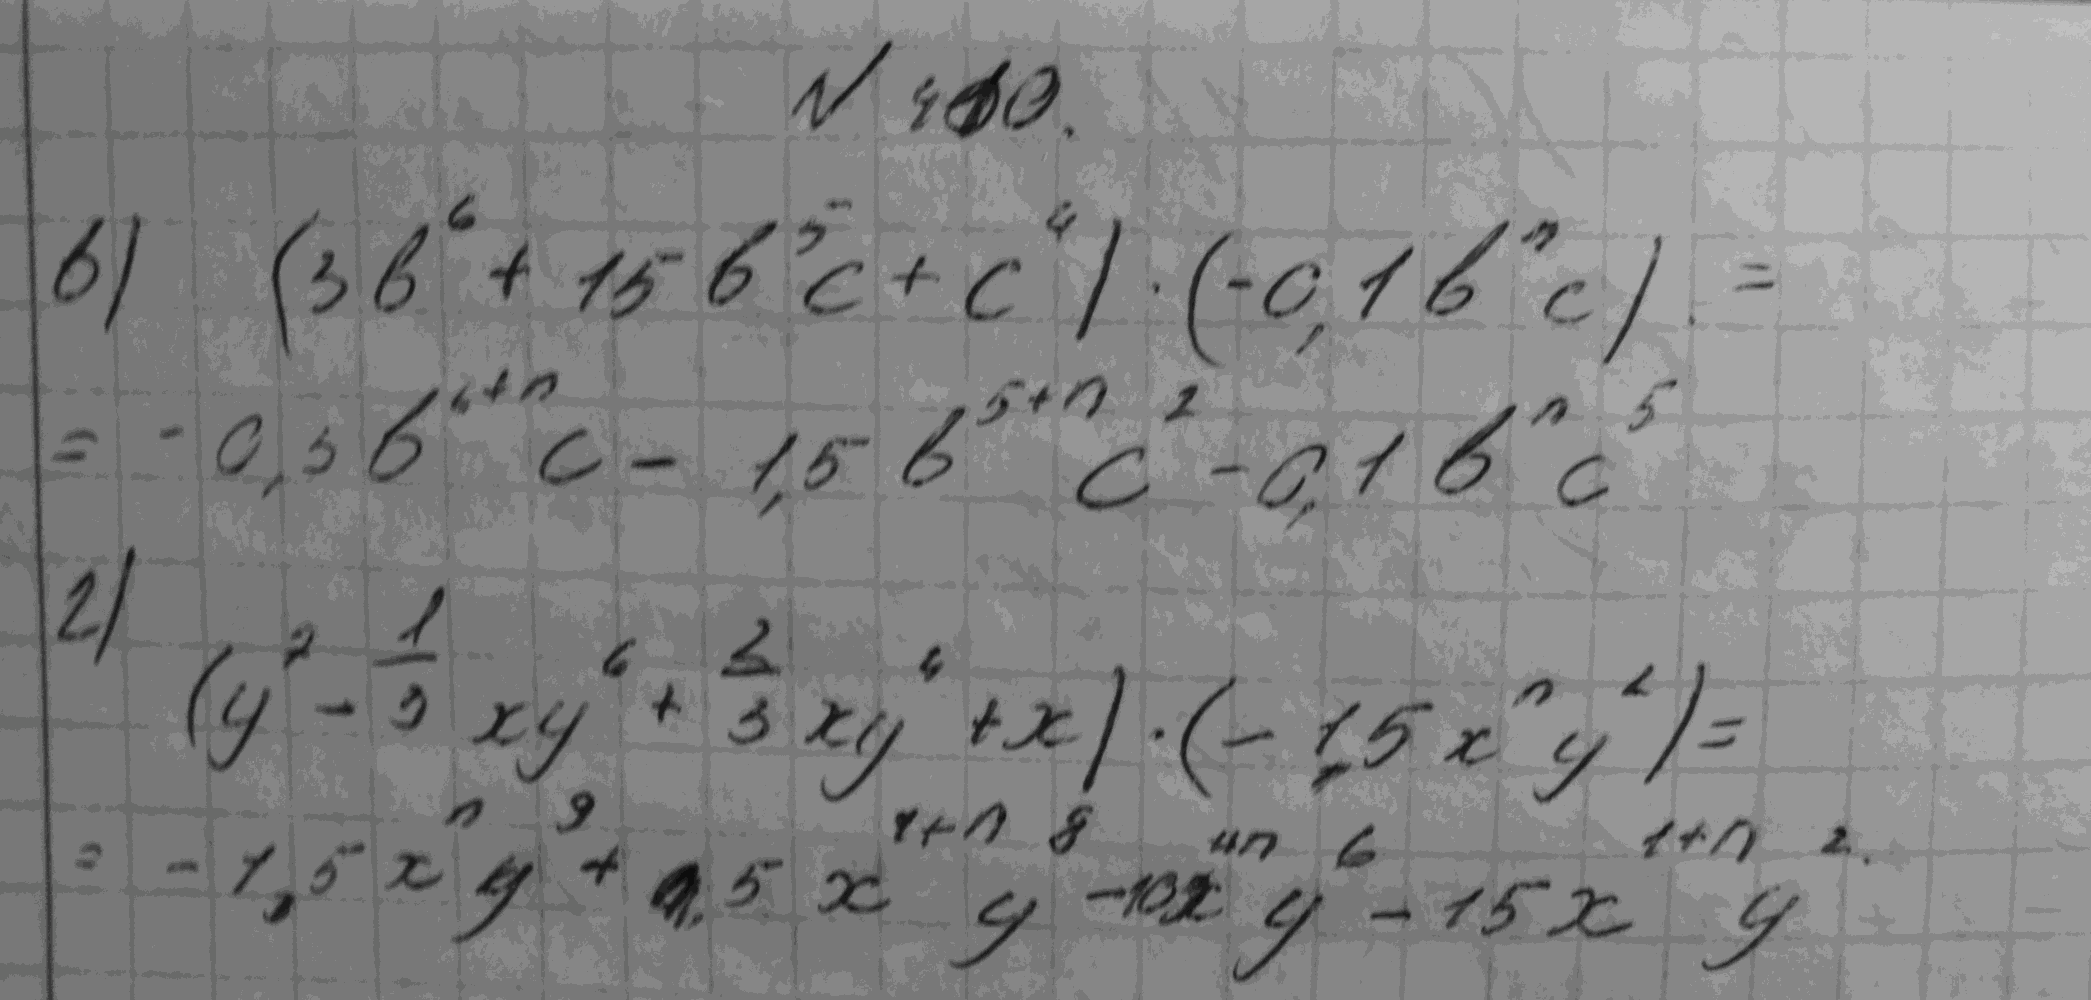 N 410.
в) (3b⁶ + 15b⁵c + c⁴) · (-0,1bⁿc) =
= -0,3b⁶⁺ⁿc - 1,5b⁵⁺ⁿc² - 0,1bⁿc⁵
г)
(y⁷ - 1/3 xy⁶ + 2/3 xy⁴ + x) · (-1,5xⁿy²) =
= -1,5xⁿy⁹ + 0,5x¹⁺ⁿy⁸ - 10x¹⁺ⁿy⁶ - 15x¹⁺ⁿy².